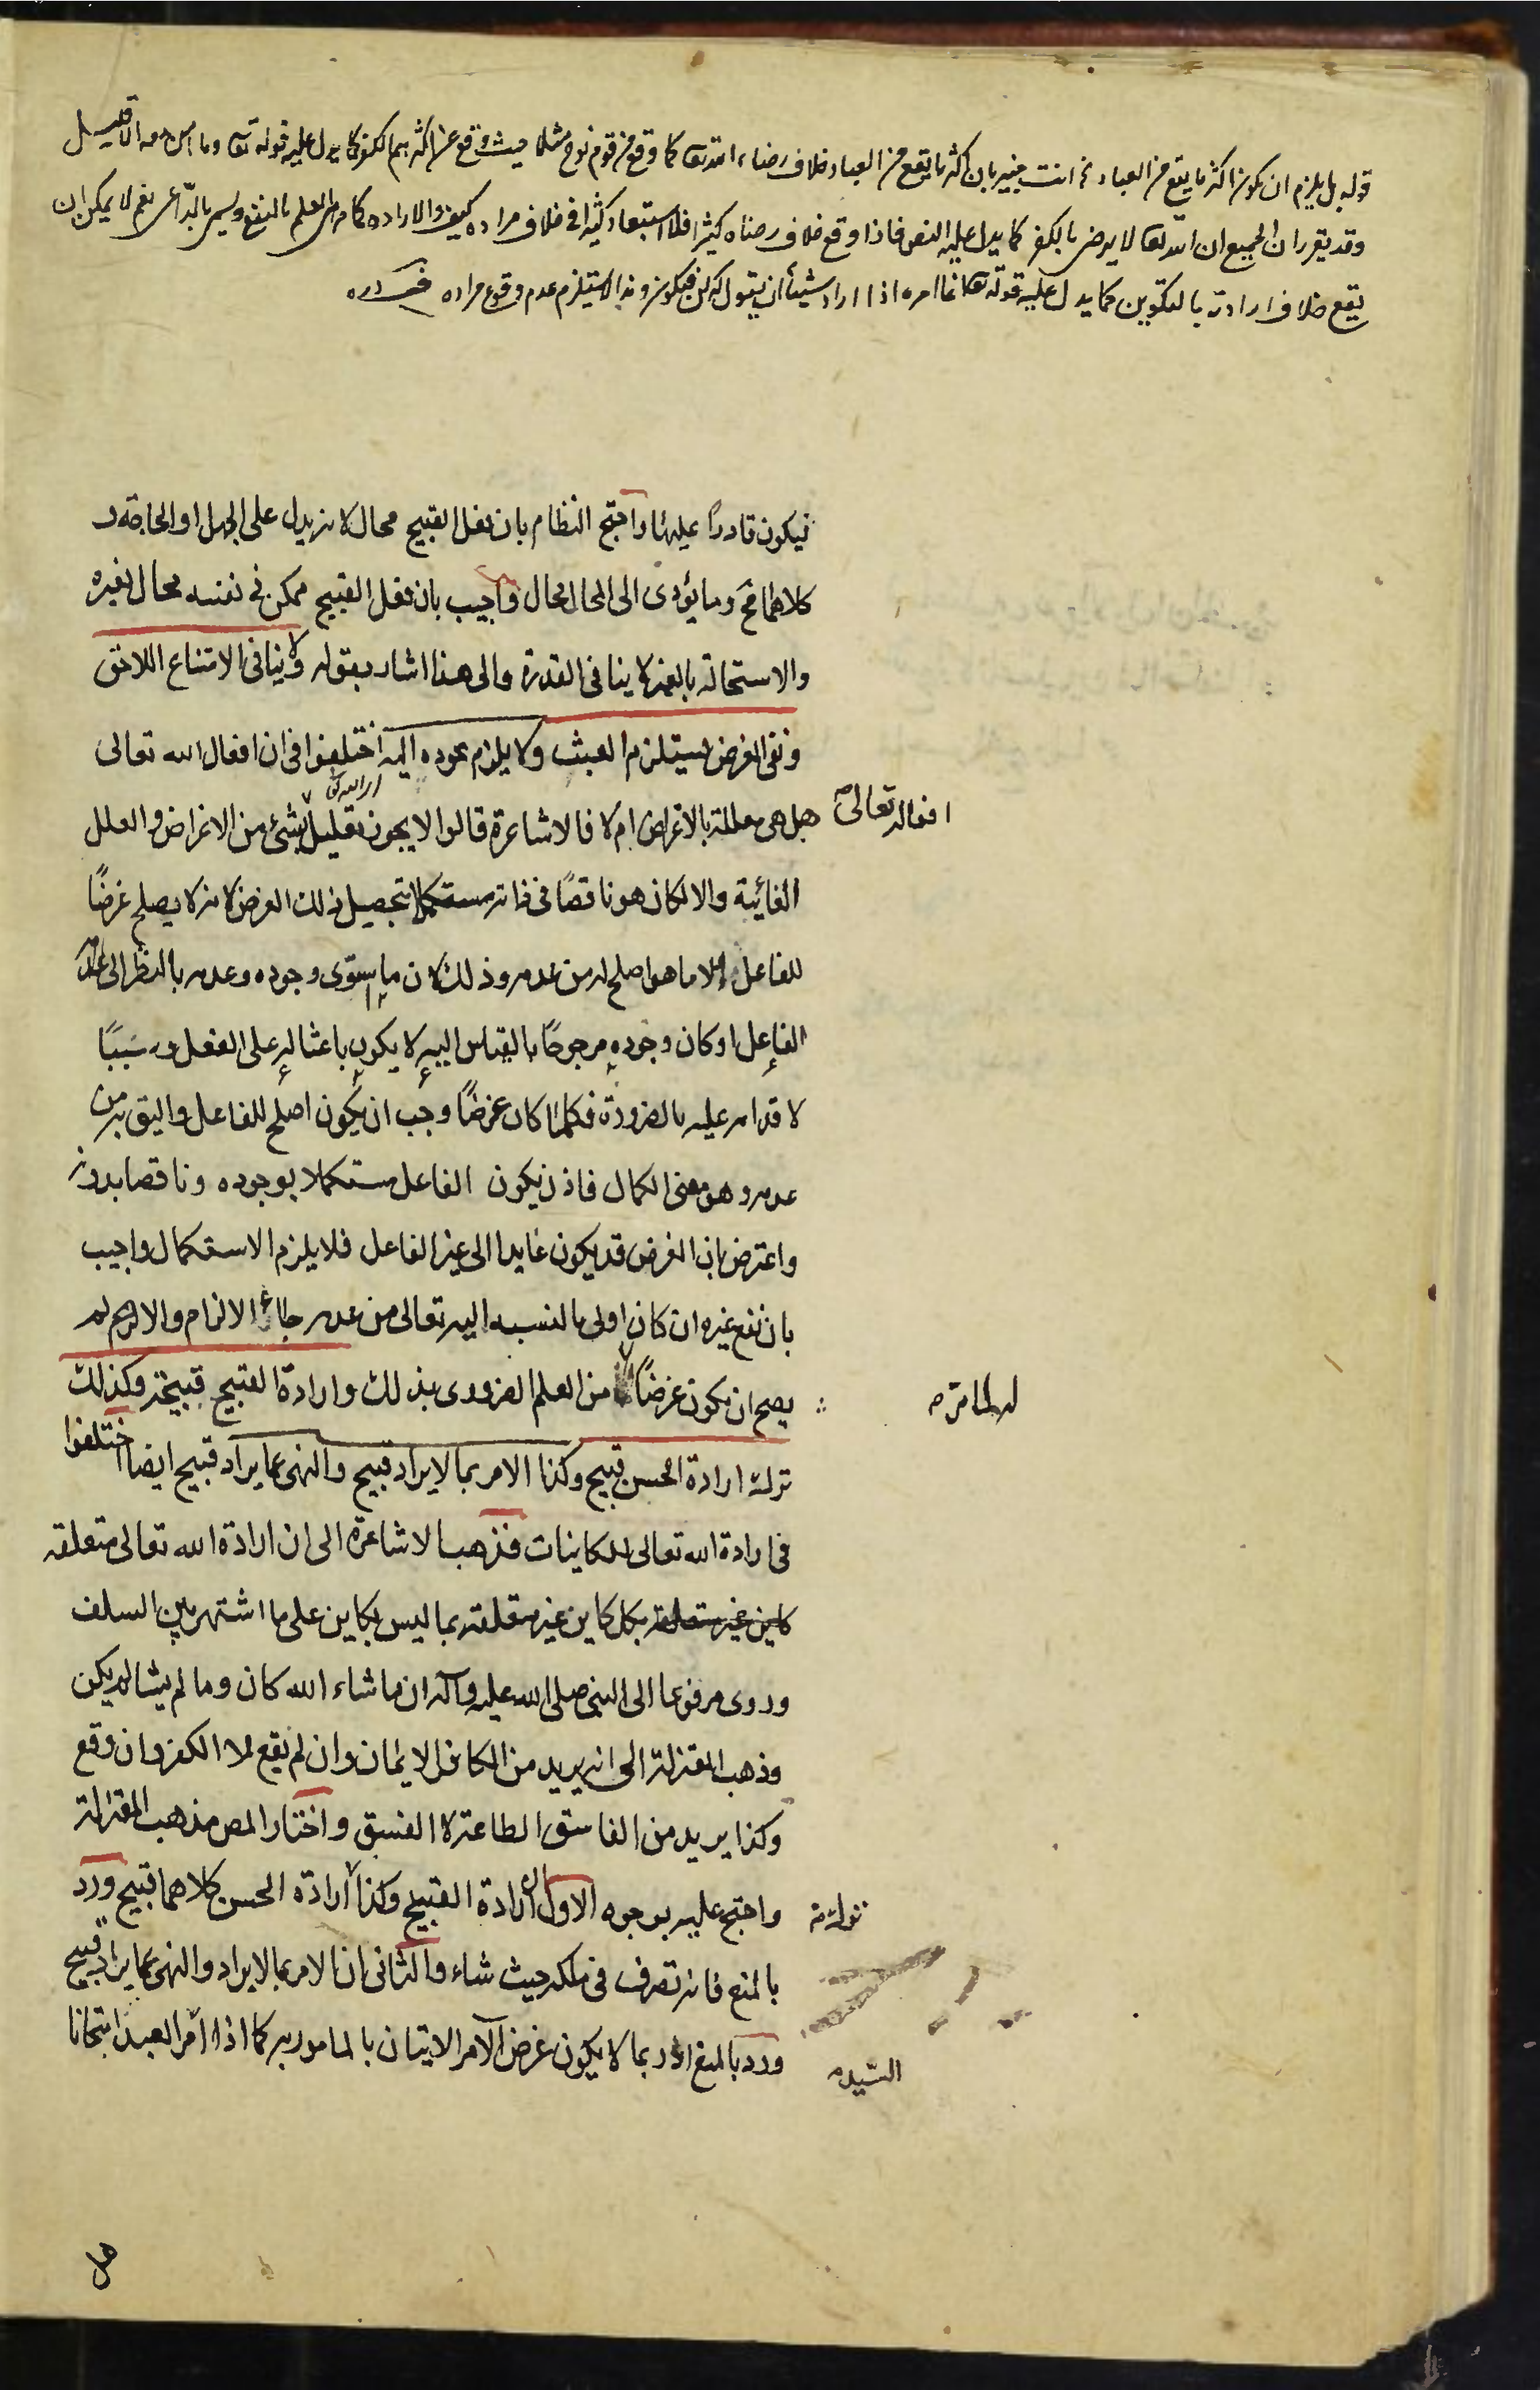 قوله بل يلزم ان يكون اكثر ما يقع من العباد انت خبير بان اكثر ما يقع من العباد خلاف رضاء الله تعا كما وقع من قوم نوح مثلا حيث وقع عن اكثرهم الكفر كما يدل عليه قوله تعا وما امن معه الا قليل
وقد تقرر ان الجميع ان الله تعا لا يرضى بالكفر كما يدل عليه النص فاذا وقع خلاف رضاه كثيرا فلا استبعاد في خلاف مراده كيف والاراده كما مر العلم بالنفع وليس بالداعى نعم لا يمكن ان
يقع خلاف ارادته بالتكوين كما يدل عليه قوله تعا انما امره اذا اراد شيئا ان يقول له كن فيكون وهذا لا يستلزم عدم وقوع مراده
فيكون قادرا عليها واحتج النظام بان فعل القبيح محال لانه يدل على الجهل او الحاجة و
كلاهما مح وما يؤدى الى المحال محال واجيب بان فعل القبيح ممكن في نفسه محال لغيره
والاستحالة بالغير لا ينافى القدرة والى هذا اشار بقوله ولا ينافى الامتناع اللاحق
ونفى الغرض يستلزم العبث ولا يلزم عوده اليه اختلفوا في ان افعال الله تعالى
افعاله تعالى
هل هى معللة بالاغراض ام لا فالاشاعرة قالوا لا يجوز تعليل بشئ من الاغراض والعلل
الغائية والا لكان هو ناقصًا في ذاته مستكملا بتحصيل ذلك الغرض لانه لا يصلح غرضًا
للفاعل الا ما هو اصلح له من عدمه وذلك لان ما استوى وجوده وعدمه بالنظر الى
الفاعل او كان وجوده مرجوحًا بالقياس اليه لا يكون باعثا له على الفعل و سببًا
لا قدامه عليه بالضرورة فكلما كان غرضًا وجب ان يكون اصلح للفاعل واليق به من
عدمه وهو معنى الكمال فاذن يكون الفاعل مستكملا بوجوده وناقصا بدونه
واعترض بان الغرض قد يكون عايدا الى غير الفاعل فلا يلزم الاستكمال واجيب
بان نفع غيره ان كان اولى بالنسبه اليه تعالى من عدمه جاء الالزام والا لم
يصح ان يكون غرضًا له من العلم الضرورى بذلك وارادة القبيح قبيحة وكذلك
ترك ارادة الحسن قبيح وكذا الامر بما لا يراد قبيح والنهى عما يراد قبيح ايضا اختلفوا
في ارادة الله تعالى للكاينات فذهب الاشاعرة الى ان ارادة الله تعالى متعلقه
كاين غير متعلقه بكل كاين غير متعلقه بما ليس بكاين على ما اشتهر بين السلف
وروى مرفوعا الى النبى صلى الله عليه وآله ان ما شاء الله كان وما لم يشا لم يكن
وذهب المعتزلة الى انه يريد من الكافر الايمان وان لم يقع لا الكفر وان وقع
وكذا يريد من الفاسق الطاعة لا الفسق واختار المص مذهب المعتزلة
واحتج عليه بوجوه الاول ان ارادة القبيح وكذا ارادة الحسن كلاهما قبيح ورد
بالمنع فانه تصرف في ملكه حيث شاء والثانى ان الامر بما لا يراد والنهى عما يراد قبيح
ورد بالمنع اذ ربما لا يكون غرض الآمر الاتيان بالمامور به كما اذا امر العبد امتحانا
السيده